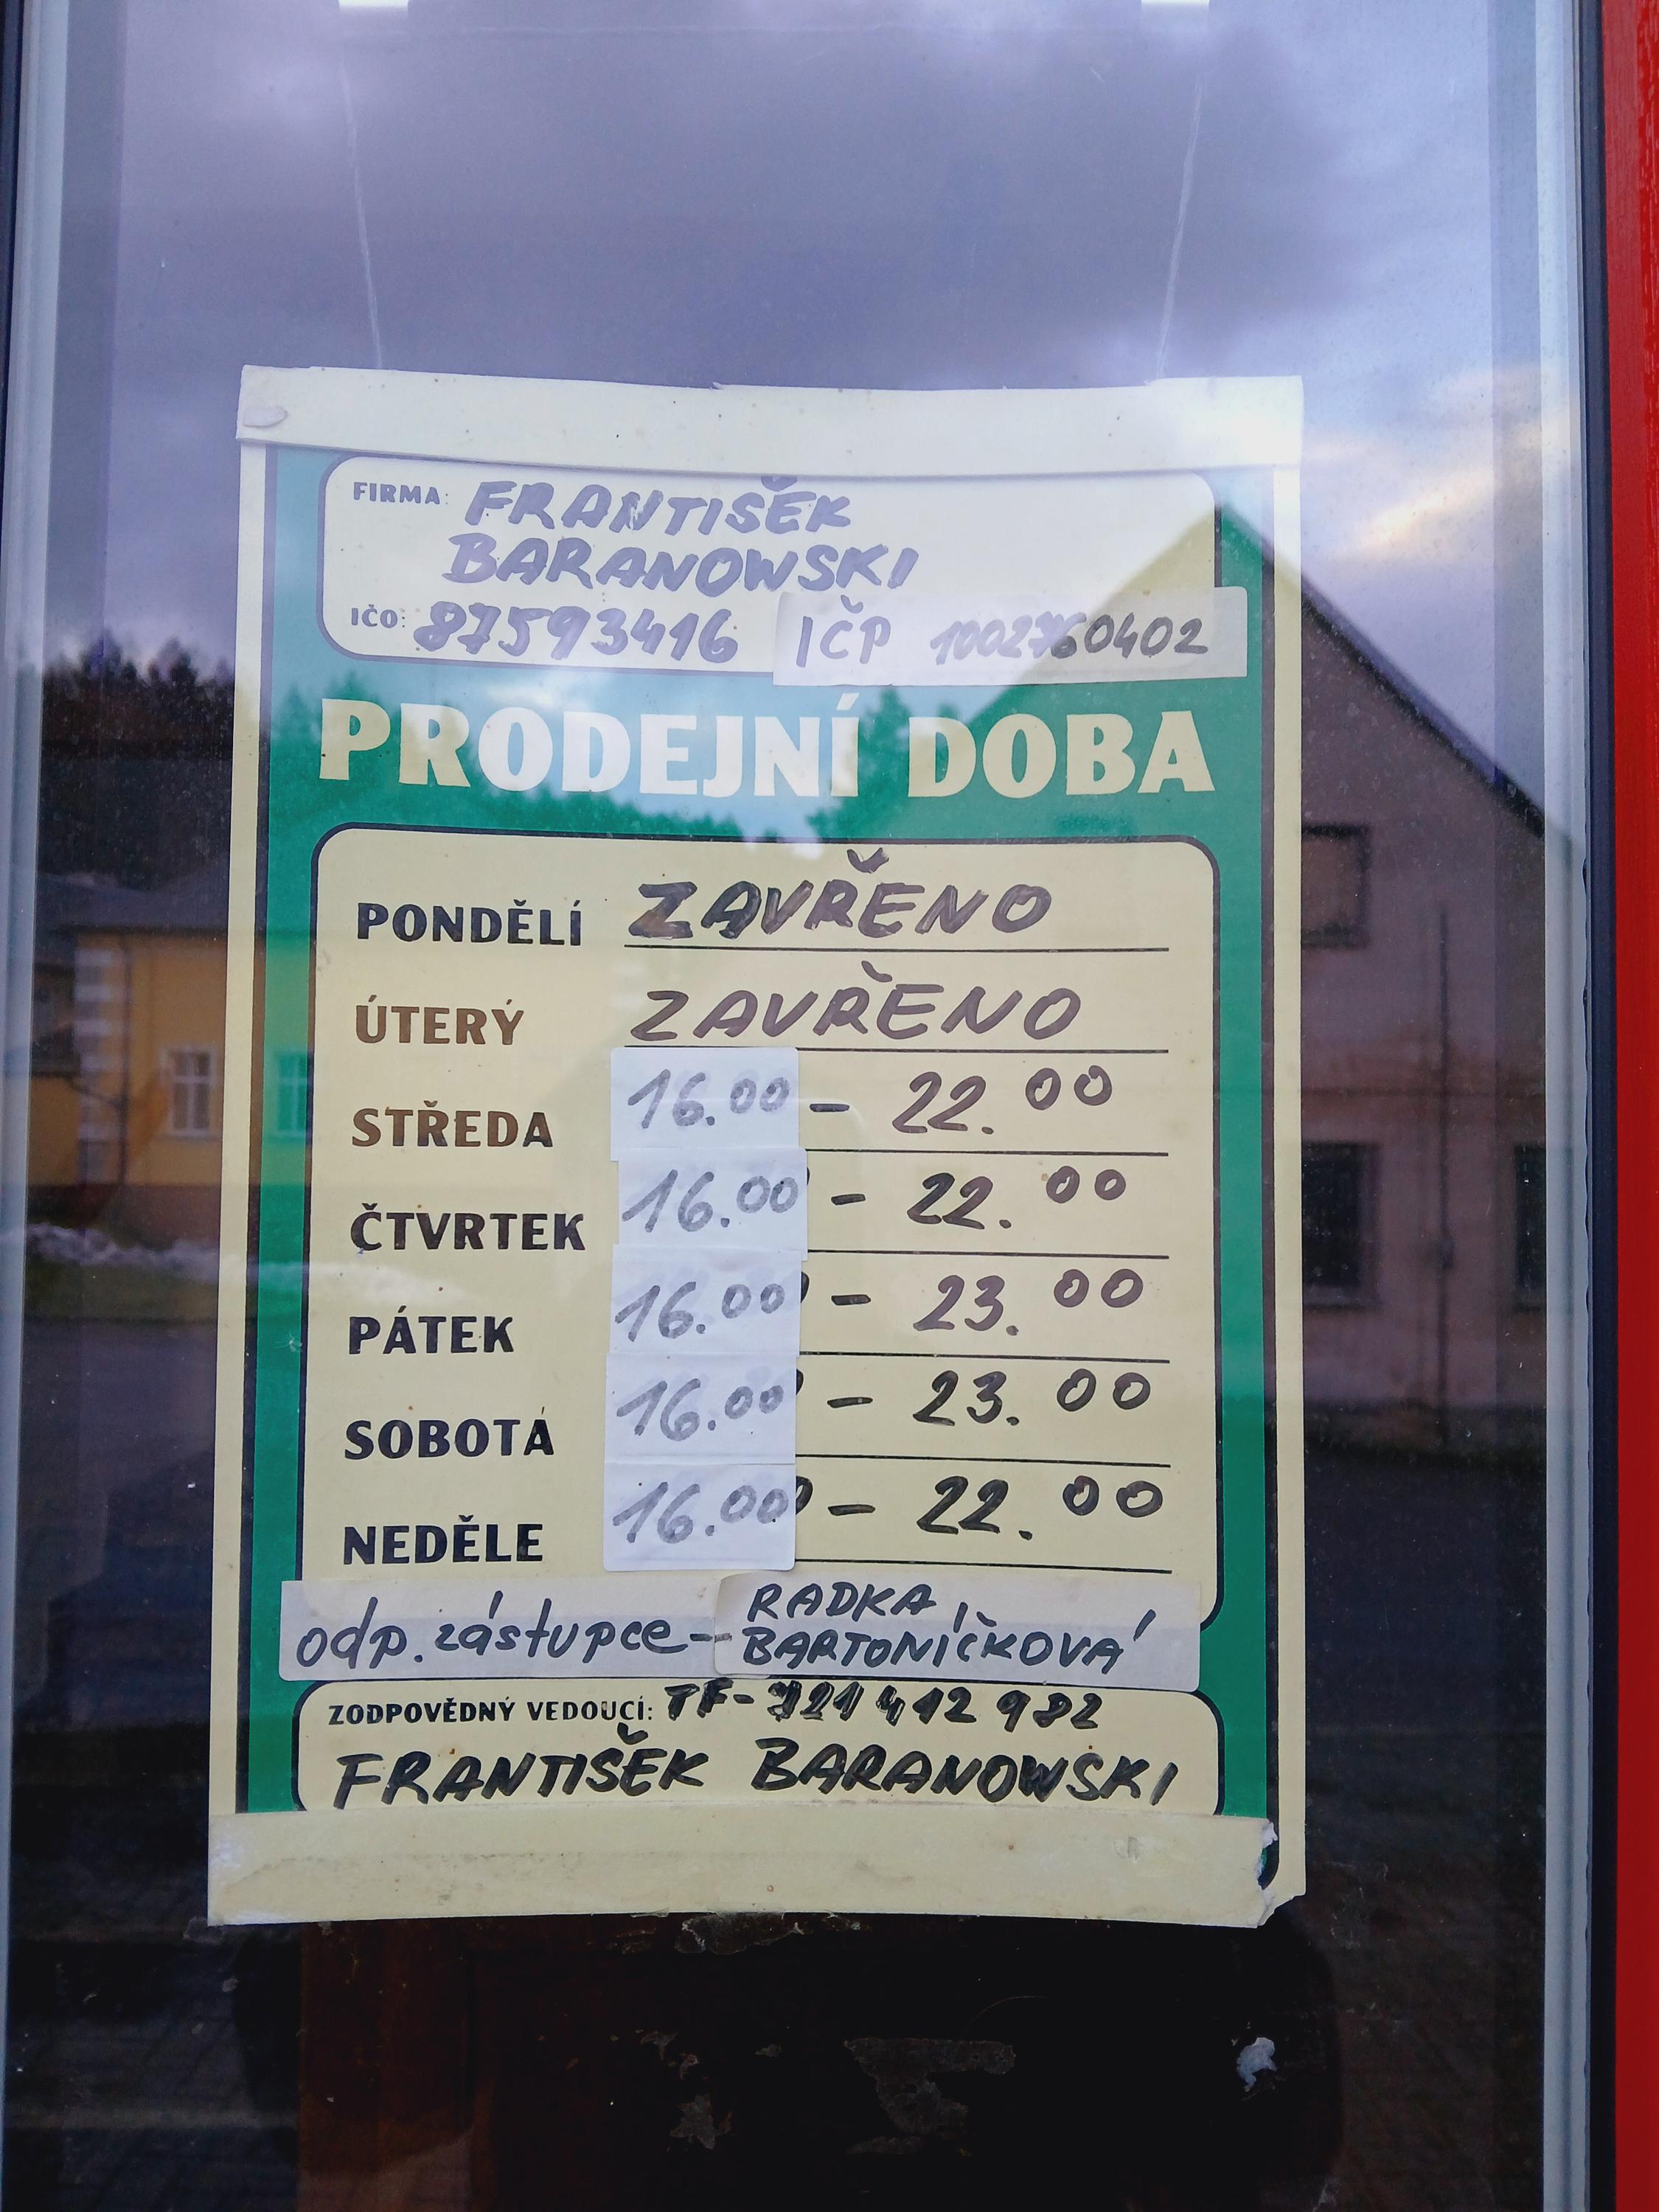 FIRMA: FRANTIŠEK
BARANOWSKI
IČO: 87593416 IČP 1002760402
PRODEJNÍ DOBA
PONDĚLÍ ZAVŘENO
ÚTERÝ ZAVŘENO
STŘEDA 16.00 - 22.00
ČTVRTEK 16.00 - 22.00
PÁTEK 16.00 - 23.00
SOBOTA 16.00 - 23.00
NEDĚLE 16.00 - 22.00
odp. zástupce - RADKA
BARTONÍČKOVÁ
ZODPOVĚDNÝ VEDOUCÍ: TF - 721 412 982
FRANTIŠEK BARANOWSKI